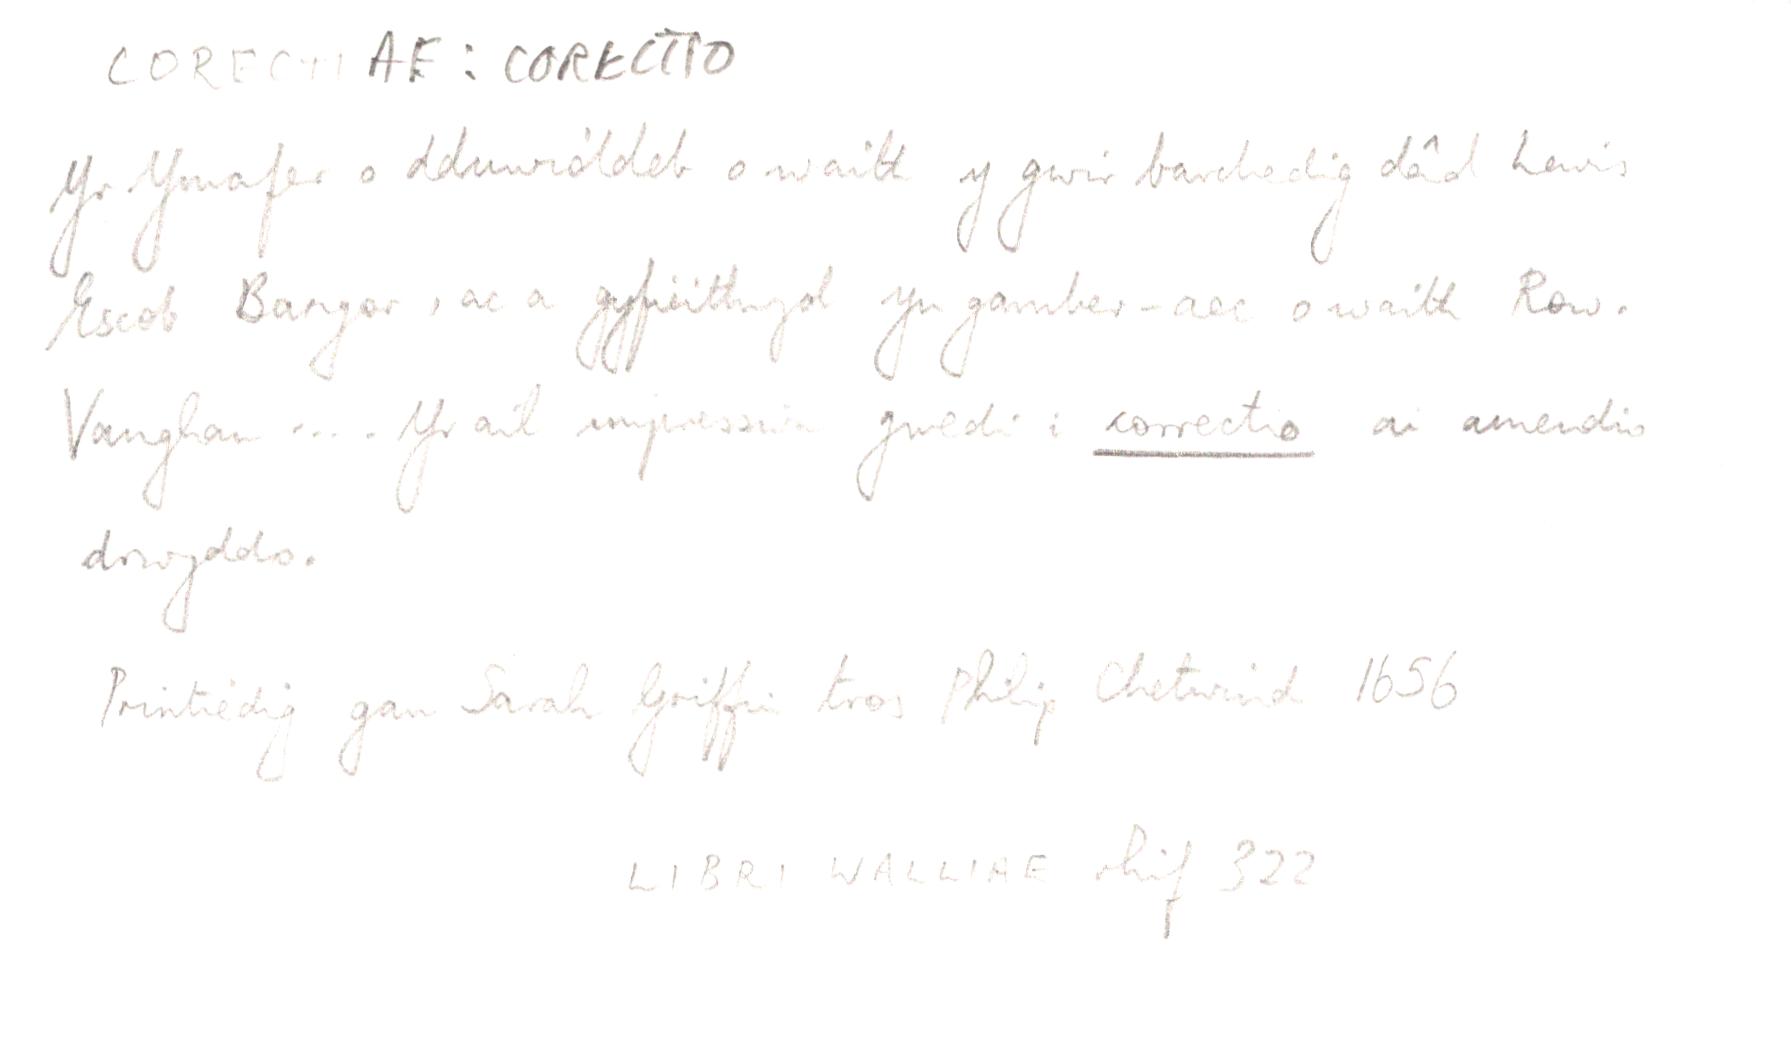 CORECTIAF: CORECTIO
Yr Ymafer o dduwioldeb o waith y gwir barchedig dâd Lewis
Escob Bangor, ac a gyfieithwyd yn gamber-aec o waith Row.
Vaughan .... Yr ail impression gwedi i correctio ai amendio
drwyddo.
Printiedig gan Sarah Griffin tros Philip Chetwind 1656
LIBRI WALLIAE rhif 322